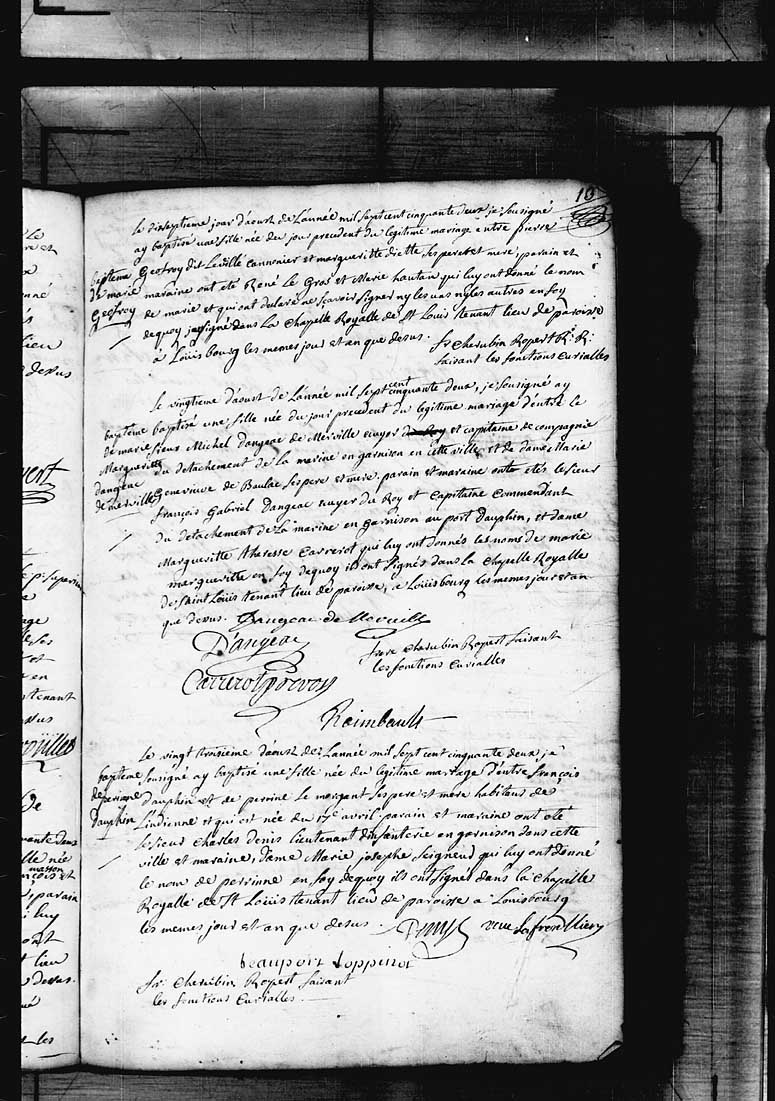 10
Le dixseptieme jour d'aoust de l'année mil sept cent cinquante deux je sousigné
ay baptisé une fille née du jour precedent du legitime mariage entre pierre
bapteme Geofroy dit Leveillé cannonier et margueritte diette, ses pere et mere, parain et
de marie maraine ont été René Le Gros et Marie hautan qui luy ont donné le nom
Geofroy de marie et qui ont declaré ne scavoir signer ny les uns ny les autres en foy
dequoy j'ay signé dans La Chapelle Royalle de St Louis tenant lieu de paroisse
à Louisbourg les memes jour et an que desus. fr Cherubin Ropert R: R:
faisant les fonctions Curialles
Le vingtieme d'aoust de l'année mil sept cent cinquante deux, je sousigné ay
bapteme baptisé une fille née du jour precedent du legitime mariage d'entre le
de marie sieur Michel Dangeac de Merville ecuyer et capitaine de compagnie
Margueritte du detachement de la marine en garnison en cette ville et de dame Marie
dangeac Genevieve de Baulac ses pere et mere. parain et maraine ont etés le sieur
de merville françois Gabriel Dangeac ecuyer du Roy et Capitaine Commendant
du detachement de La marine en garnison au port Dauphin, et dame
Margueritte theresse Carrerot qui luy ont donnés les noms de marie
margueritte en foy dequoy ils ont signés dans la chapelle Royalle
de Saint Louis tenant lieu de paroisse, a Louisbourg les memes jour et an
que desus. Dangeac de Merville
D'angeac frere Cherubin Ropert faisant
les fonctions Curialles
Carrerot
Raimbault
Le vingt troisieme d'aoust de L'année mil sept cent cinquante deux je
bapteme sousigné ay baptisé une fille née du legitime mariage d'entre françois
de perinne dauphin et de perrine le morgant ses pere et mere habitens de
dauphin L'indienne et qui est née du 17e avril. parain et maraine ont été
Le sieur Charles Denis lieutenant d'infanterie en garnison dans cette
ville et maraine, Dame Marie josephe Seigneur qui luy ont donné
le nom de perrinne en foy dequoy ils ont signés dans la chapelle
Royalle de St Louis tenant lieu de paroisse a Louisbourg
les memes jour et an que desus.
fr. Cherubin Ropert faisant
les fonctions Curialles